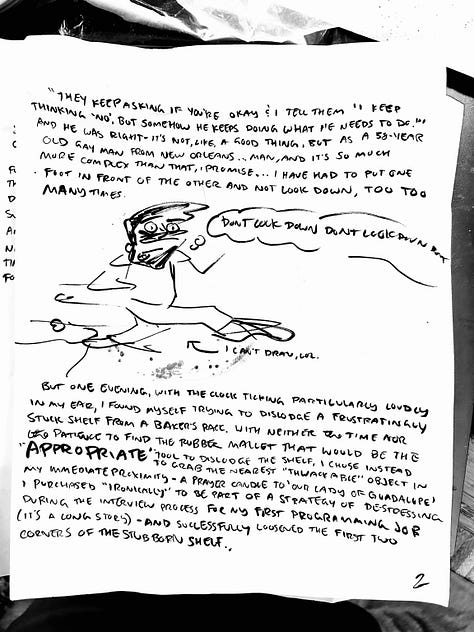 "THEY KEEP ASKING IF YOU'RE OKAY & I TELL THEM "I KEEP
THINKING 'NO', BUT SOMEHOW HE KEEPS DOING WHAT HE NEEDS TO DO."'
AND HE WAS RIGHT - IT'S NOT, LIKE, A GOOD THING, BUT AS A 53-YEAR
OLD GAY MAN FROM NEW ORLEANS... MAN, AND IT'S SO MUCH
MORE COMPLEX THAN THAT, I PROMISE... I HAVE HAD TO PUT ONE
FOOT IN FRONT OF THE OTHER AND NOT LOOK DOWN, TOO TOO
MANY TIMES.
DONT LOOK DOWN DONT LOOK DOWN DONT
I CAN'T DRAW, LOL.
BUT ONE EVENING, WITH THE CLOCK TICKING PARTICULARLY LOUDLY
IN MY EAR, I FOUND MYSELF TRYING TO DISLODGE A FRUSTRATINGLY
STUCK SHELF FROM A BAKER'S RACK. WITH NEITHER THE TIME NOR
PATIENCE TO FIND THE RUBBER MALLET THAT WOULD BE THE
"APPROPRIATE" TOOL TO DISLODGE THE SHELF, I CHOSE INSTEAD
TO GRAB THE NEAREST "THWACKABLE" OBJECT IN
MY IMMEDIATE PROXIMITY - A PRAYER CANDLE TO 'OUR LADY OF GUADALUPE'
I PURCHASED "IRONICALLY" TO BE PART OF A STRATEGY OF DE-STRESSING
DURING THE INTERVIEW PROCESS FOR MY FIRST PROGRAMMING JOB
(IT'S A LONG STORY) - AND SUCCESSFULLY LOOSENED THE FIRST TWO
CORNERS OF THE STUBBORN SHELF.,
2